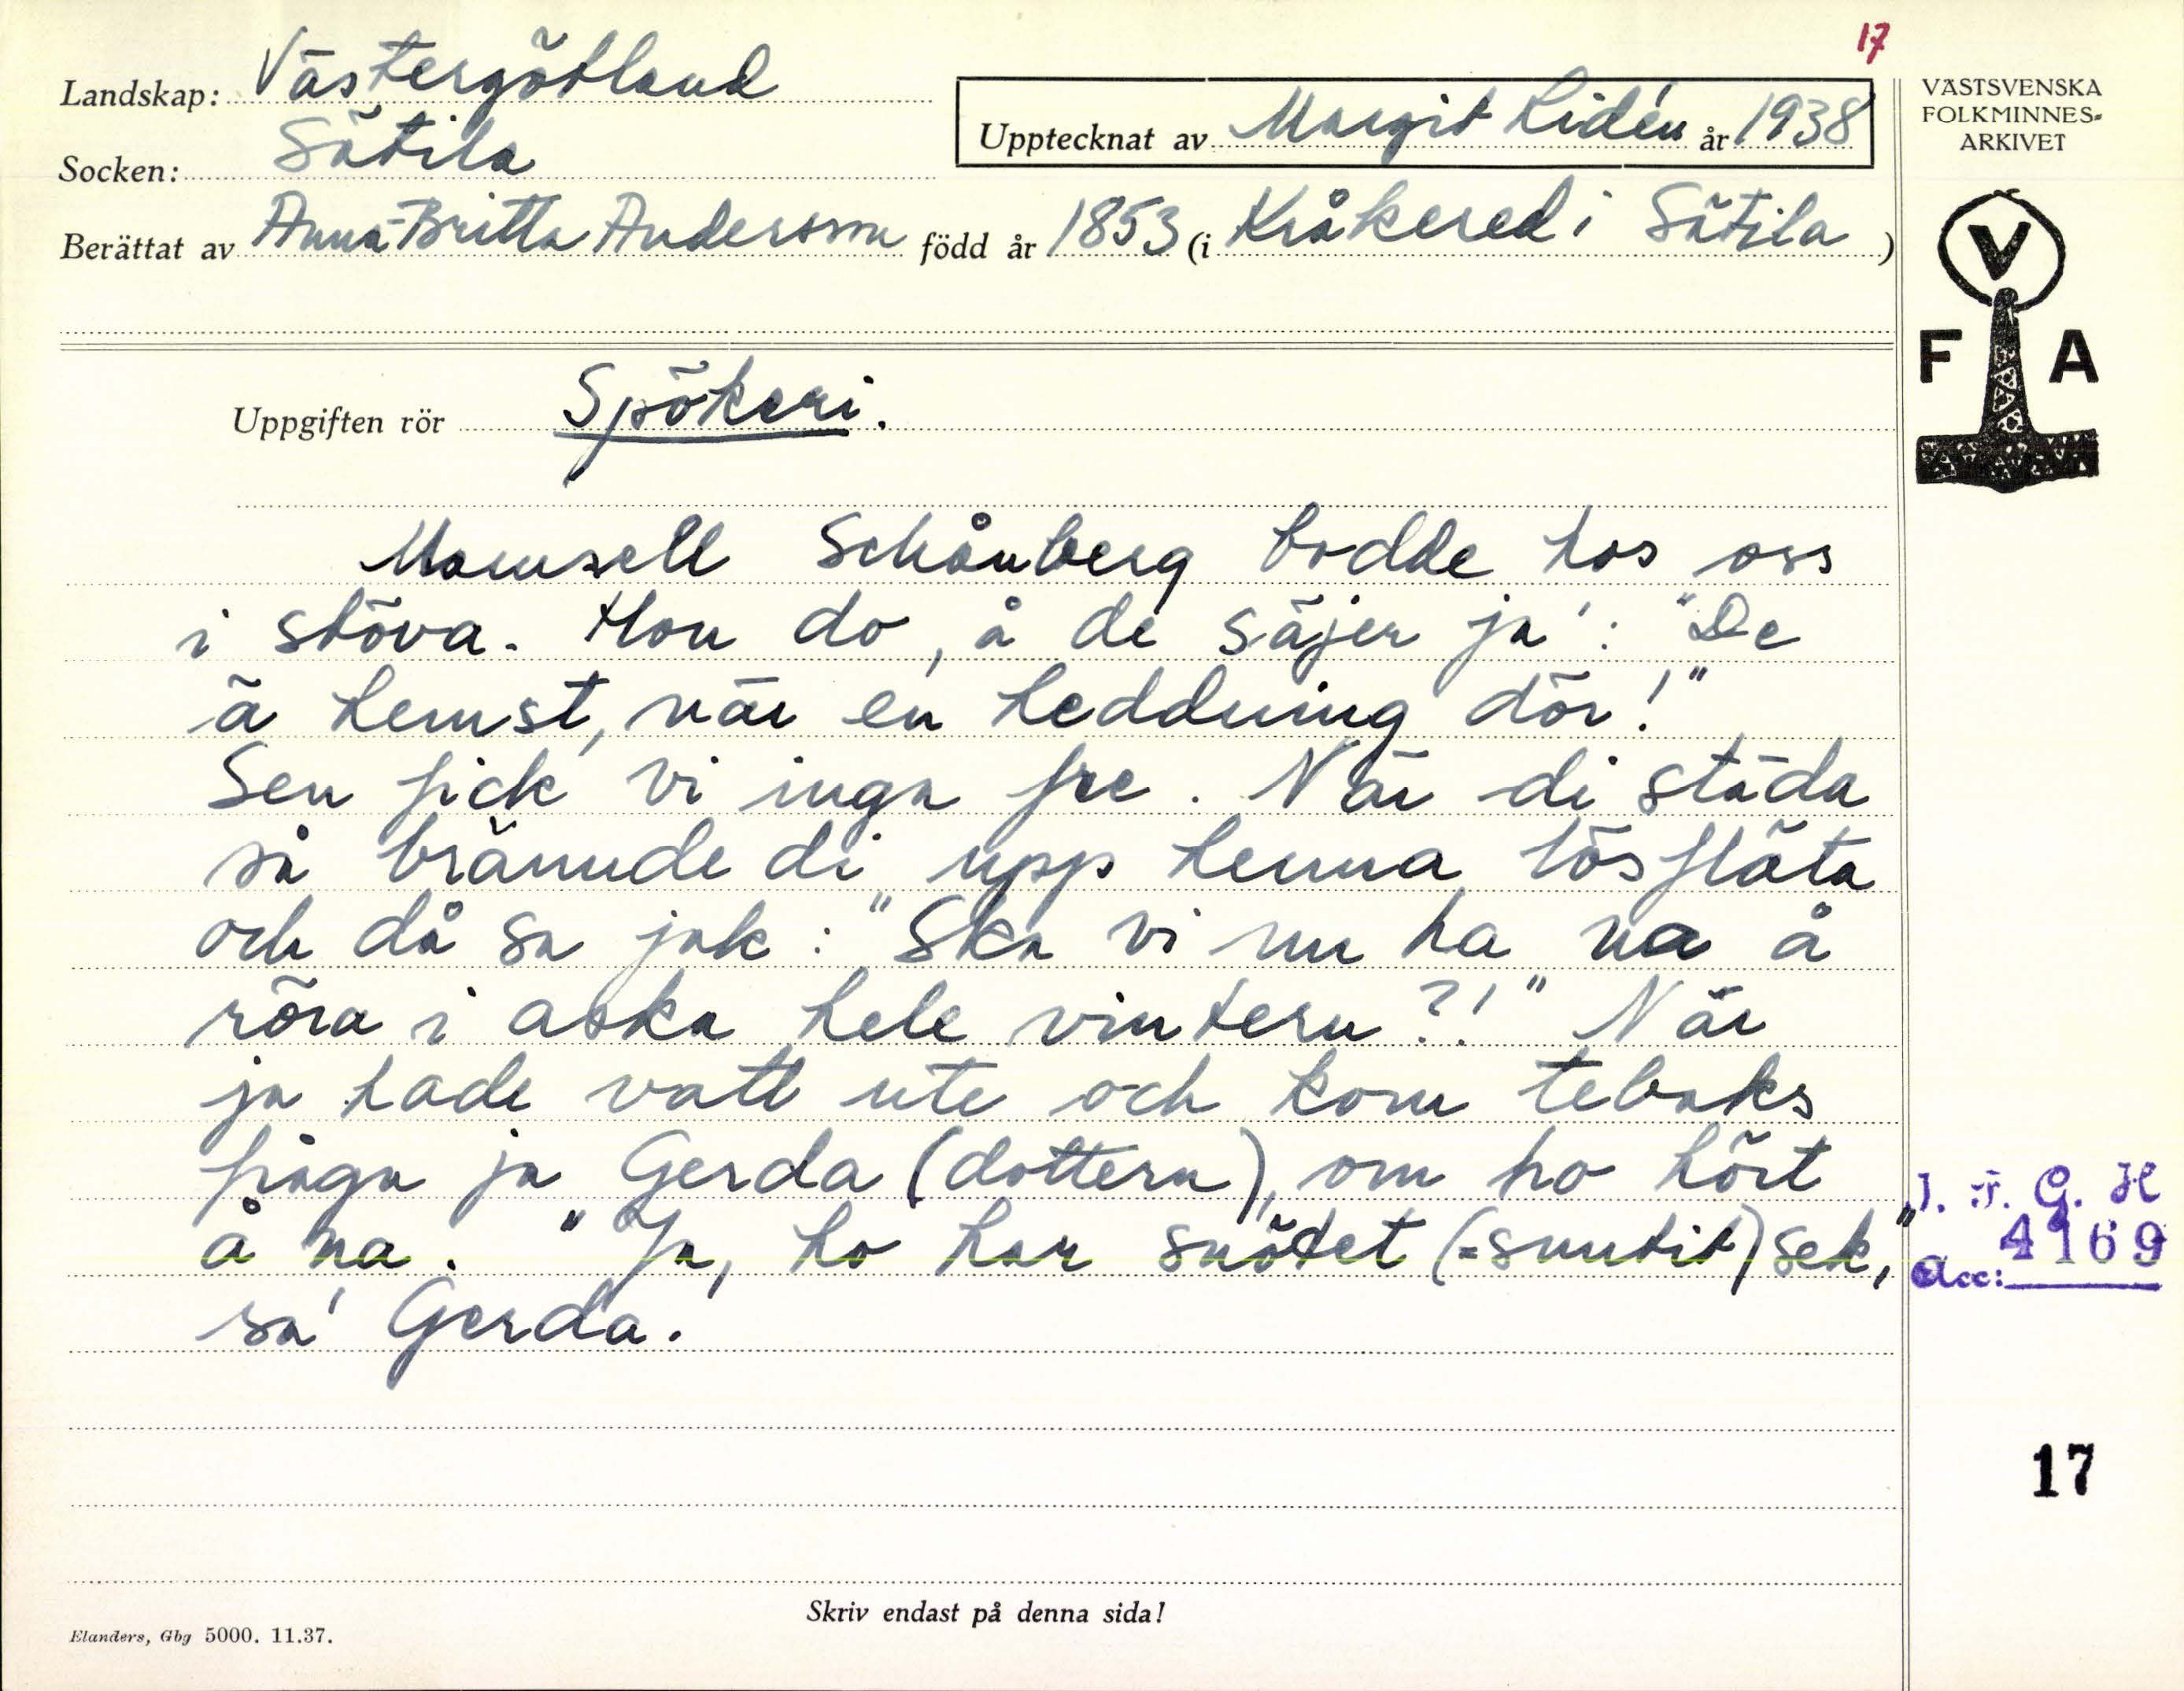 17
Landskap: Västergötland
Socken: Sätila
Upptecknat av Margit Lidén år 1938
Berättat av Anna-Britta Andersson född år 1853 (i Kråkered i Sätila)
VÄSTSVENSKA
FOLKMINNES-
ARKIVET
V
F A
Uppgiften rör Spökeri.
Mamsell Schånberg bodde hos oss
i stöva. Hon do, å de säjer ja': "De
ä hemst, när en heddning dör!"
Sen fick vi inga fre. När di städa
så brännde di upp henna lösfläta
och då sa jak: "Ska vi nu ha na å
röra i aska hele vintern?!" När
ja hade vatt ute och kom tebaks
fråga ja Gerda (dottern), om ho hört
å na. "Ja, ho har snötet (=snutit) sek,"
sa' Gerda.
I. F. G. H
Acc: 4169
17
Skriv endast på denna sida!
Elanders, Gbg 5000. 11.37.